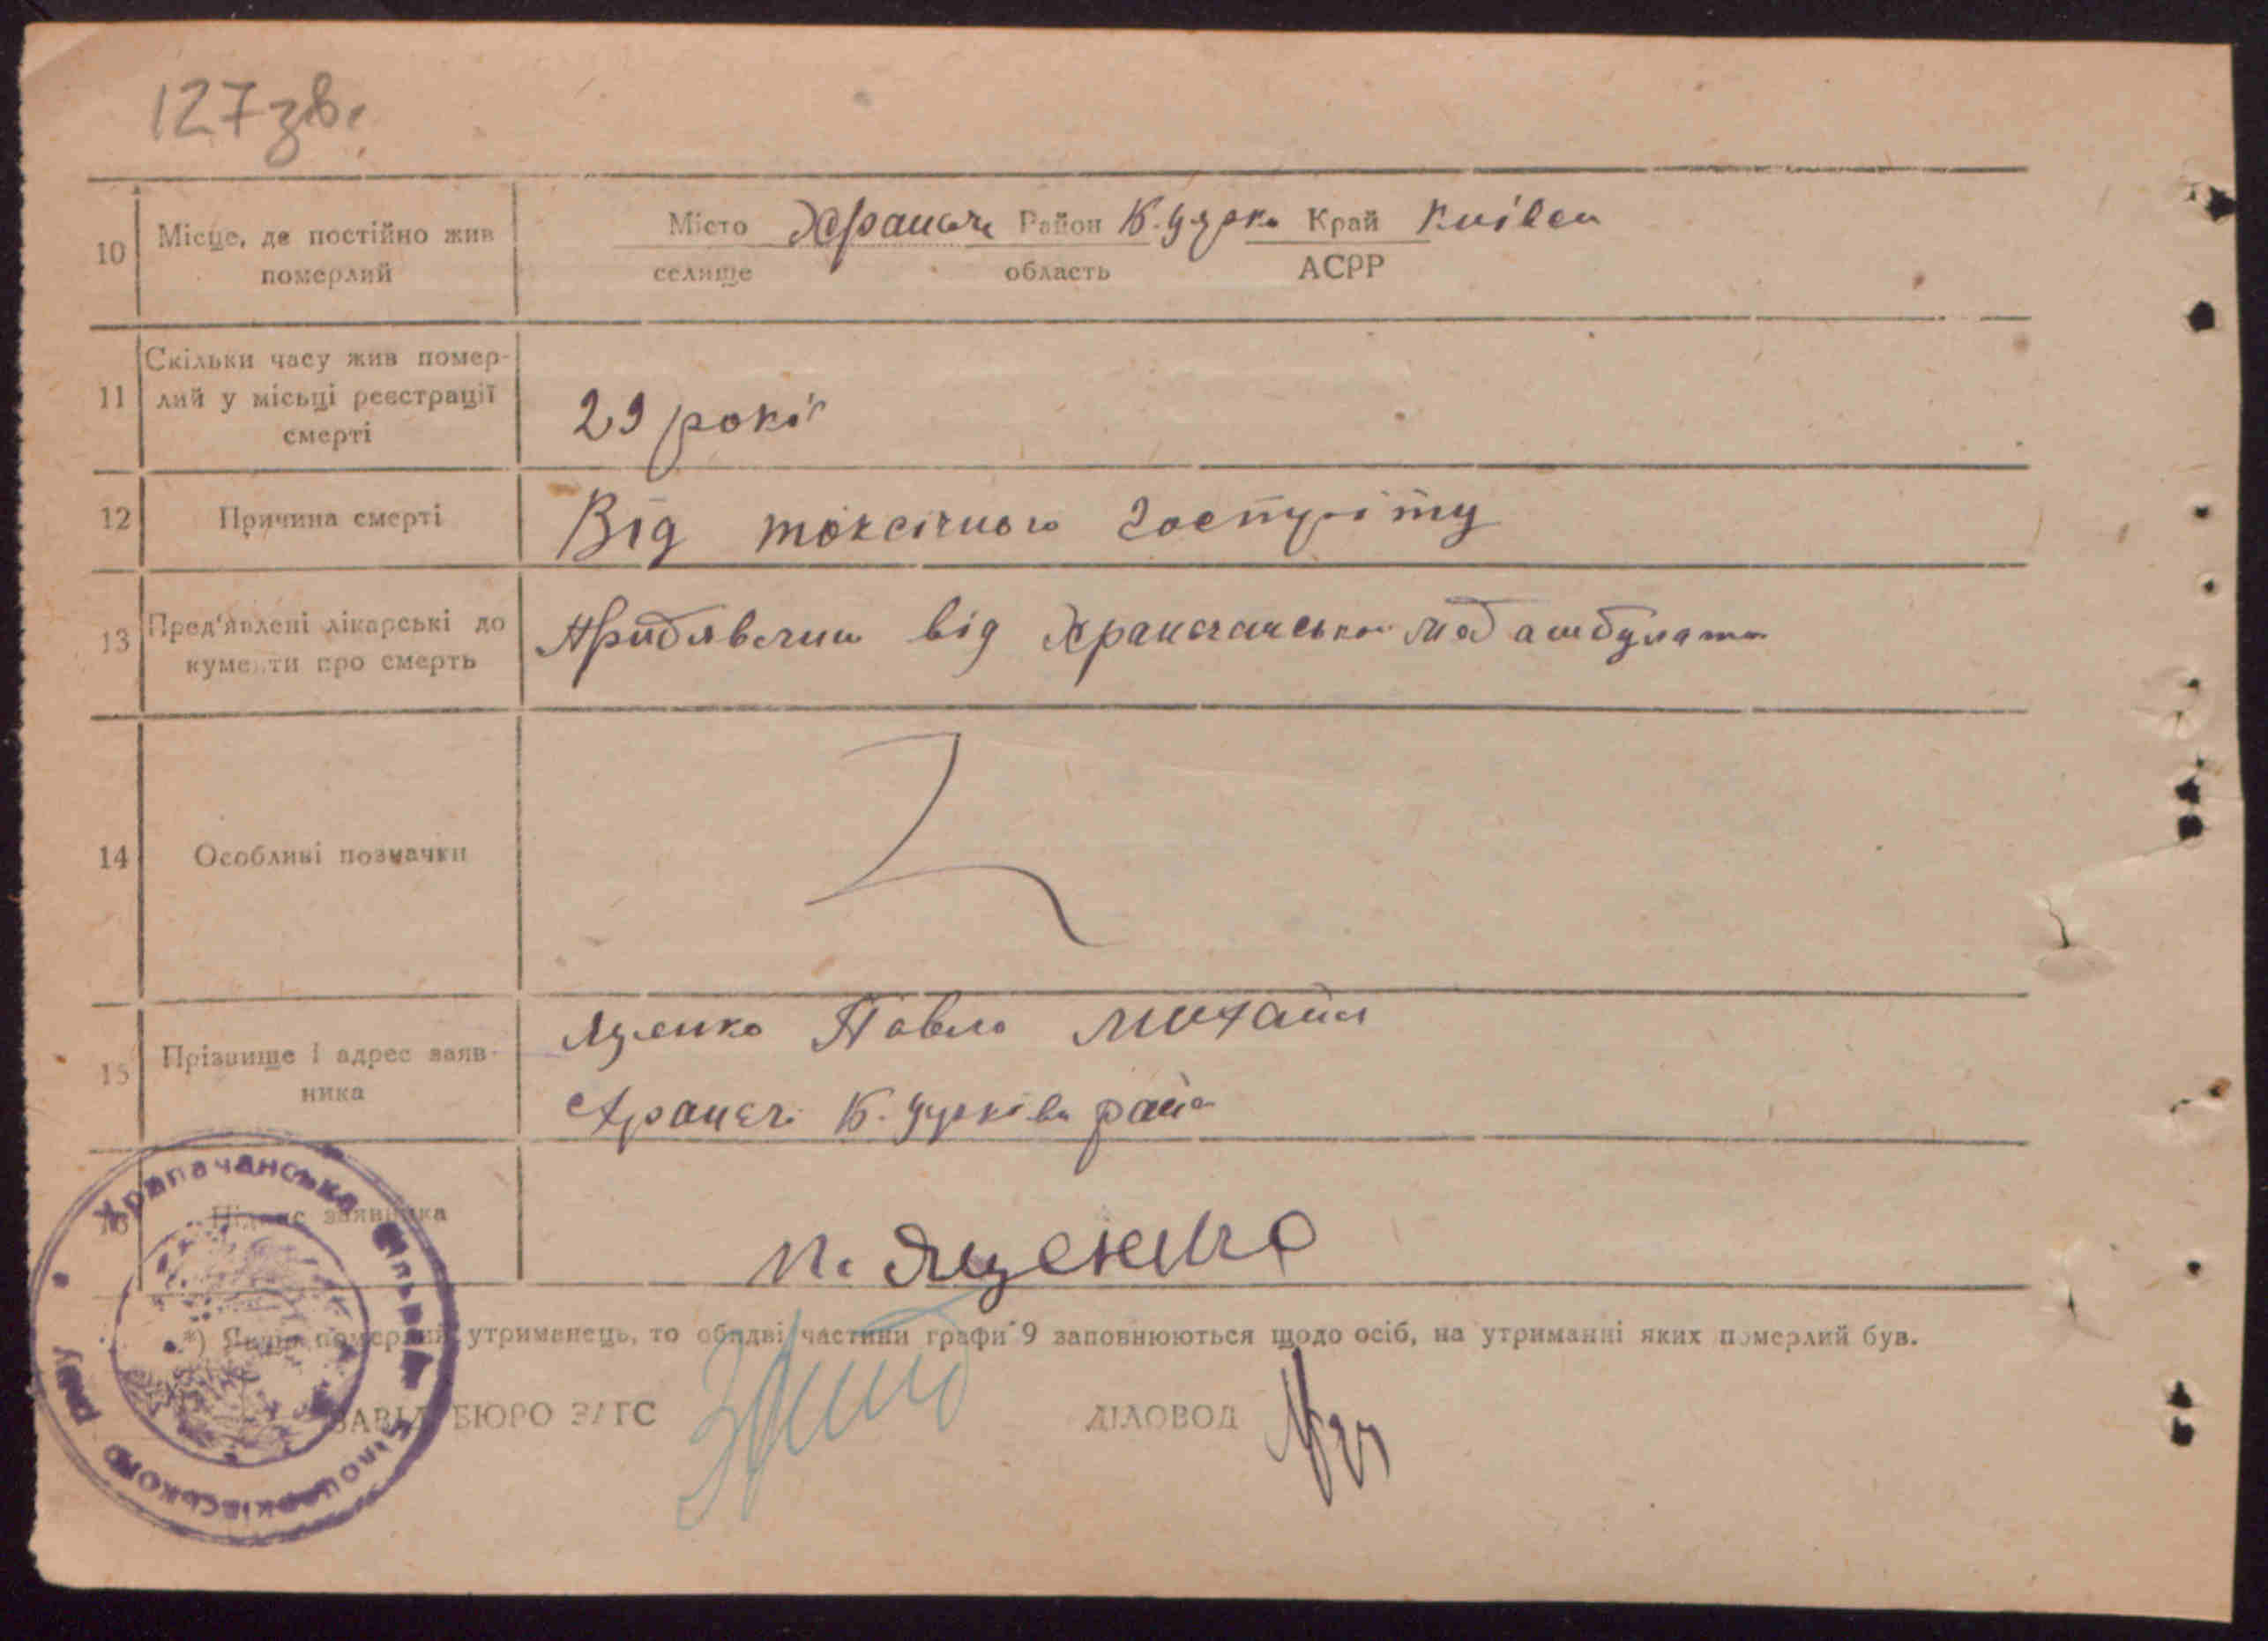 127 зв.
10 Місце, де постійно жив померлий
Місто Храпачі Район Б. Церкв Край Київськ
селище область АСРР
11 Скільки часу жив помер-
лий у місьці реєстрації
смерті
29 років
12 Причина смерті
Від токсічного гостріту
13 Пред'явлені лікарські до
кументи про смерть
від Храпачанської мед амбулато
14 Особливі позначки
15 Прізвище і адрес заяв-
ника
Яценко Павло Михайл
Храпачі Б. Церківс район
16 Підпис заявника
П. Яценко
*) Якщо померлий утриманець, то обидві частини графи 9 заповнюються щодо осіб, на утриманні яких померлий був.
ЗАВІД. БЮРО ЗАГС ДІЛОВОД
Храпачанська сільрада Білоцерківського р-ну